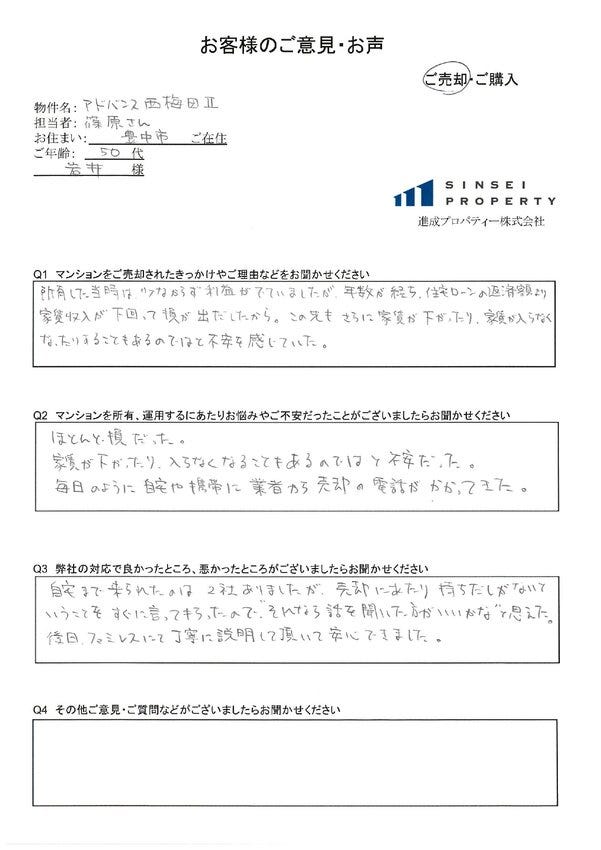 お客様のご意見・お声
ご売却・ご購入
物件名: アドバンス西梅田Ⅱ
担当者: 篠原さん
お住まい: 豊中市 ご在住
ご年齢: 50 代
岩井 様
SINSEI
PROPERTY
進成プロパティー株式会社
Q1 マンションをご売却されたきっかけやご理由などをお聞かせください
所有した当時は、少ないながらず利益がでていましたが、年数が経ち、住宅ローンの返済額より
家賃収入が下回って損が出だしたから。この先もさらに家賃が下がったり、家賃が入らなく
なったりすることもあるのではと不安を感じていた。
Q2 マンションを所有、運用するにあたりお悩みやご不安だったことがございましたらお聞かせください
ほとんど損だった。
家賃が下がったり、入らなくなることもあるのではと不安だった。
毎日のように自宅や携帯に業者から売却の電話がかかってきた。
Q3 弊社の対応で良かったところ、悪かったところがございましたらお聞かせください
自宅まで来られたのは2社ありましたが、売却にあたり持ちだしがないと
いうことをすぐに言ってもらったので、"それなら話を聞いた方がいいかな"と思えた。
後日、ファミレスにて丁寧に説明して頂いて安心できました。
Q4 その他ご意見・ご質問などがございましたらお聞かせください